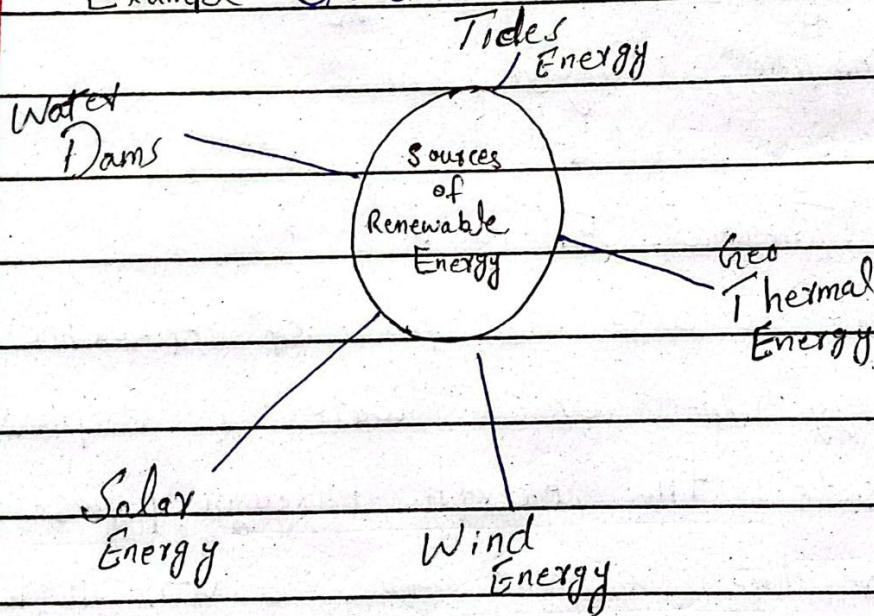 Example
Tides
Energy
Water
Dams
Sources
of
Renewable
Energy
Geo
Thermal
Energy
Solar
Energy
Wind
Energy